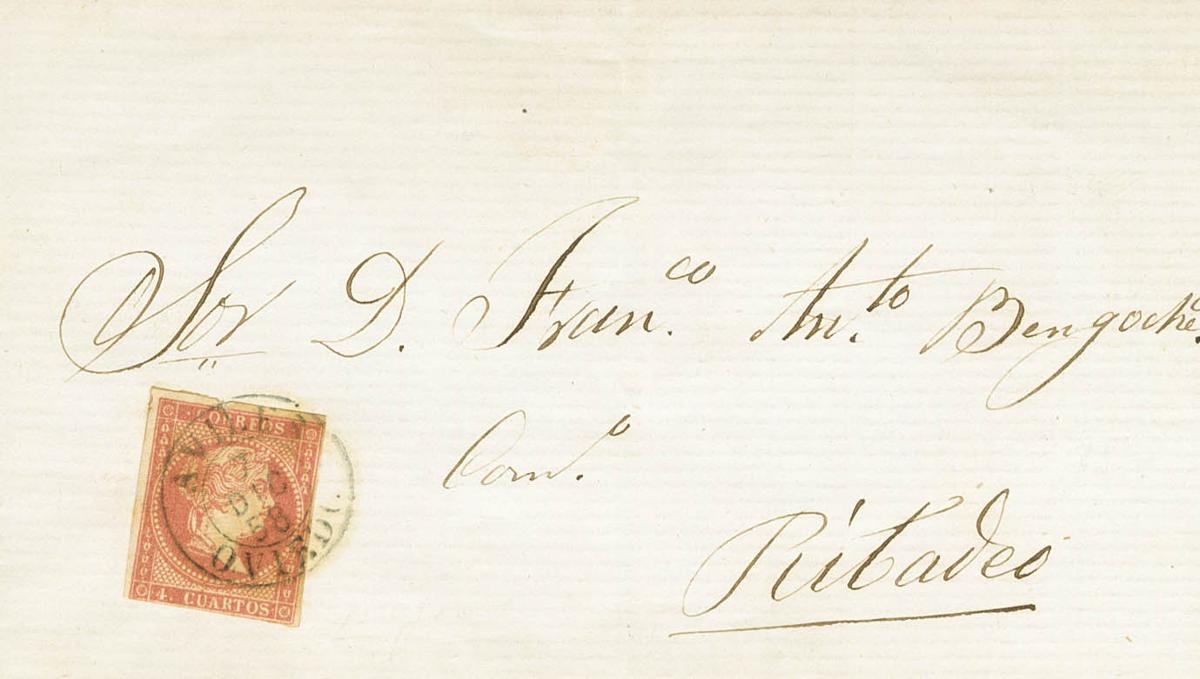 Sor D. Fran.co Ant.to Bengoche.
Com.o
Ribadeo
CORREOS
4. CUARTOS
AVILES
DIC
58
OVIEDO.